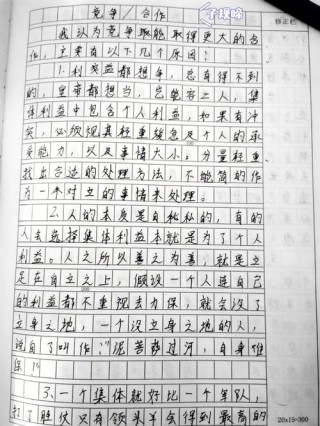 竞争/合作
修正栏
我认为竞争取能取得更大的合
作，主要有以下几个原因：
1.利益都想争，总有得不到
的，皇帝都想当，岂能容二人，集
体利益中包含个人利益，如果有冲
突，必须视其轻重缓急及个人的承
受能力，以及事情大小，分量轻重，
找出合适的处理方法，不能简的作
为一个对立的事情来处理。
2.人的本质是自私的，有的
人去选择集体利益本就是为了个人
利益。人之所以善之为善，就是立
足在自立之上，假设一个人连自己
的利益都不重视去力保，就会没了
立身之地，一个没立身之地的人，
说白了叫作："泥菩萨过河，自身难
保！"
3.一个集体就好比一个军队，
打了胜仗只有领头羊会得到最高的
20x15=300